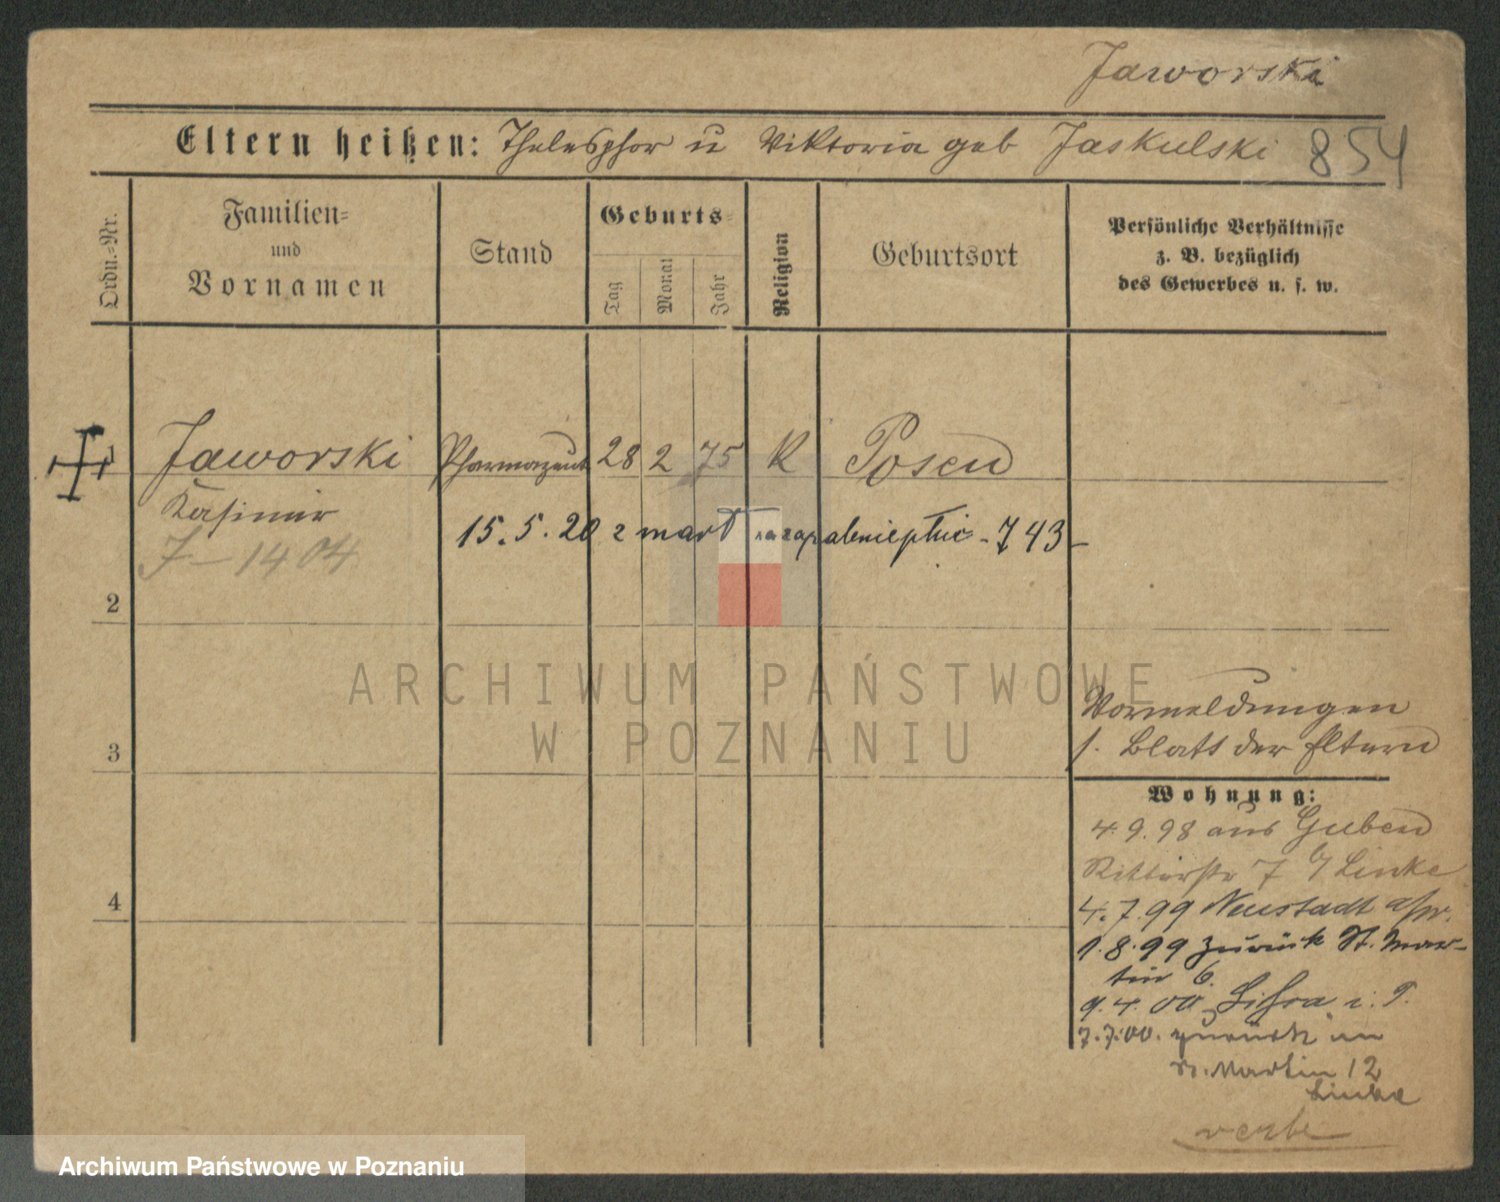 Jaworski
Eltern heißen: Thelesphor u Viktoria geb Jaskulski 854
Ordn.-Nr.
Familien-
und
Vornamen
Stand
Geburts-
Tag
Monat
Jahr
Religion
Geburtsort
Persönliche Verhältnisse
z. B. bezüglich
des Gewerbes u. s. w.
1 Jaworski Pharmazeut 28 2 75 K Posen
Kasimir
15.5.20 z mart na zapalenie płuc - 743 -
J - 1404
2
ARCHIWUM PAŃSTWOWE
W POZNANIU
Vormeldungen
s. Blatt der Eltern
3
Wohnung:
4.9.98 aus Guben
Ritterstr 7 b/ Linke
4
4.7.99 Neustadt
1.8.99 zurück St. Mar-
tin 6.
9.4.00 Lissa i. P.
7.7.00. zurück
St. Martin 12
Linke
Archiwum Państwowe w Poznaniu